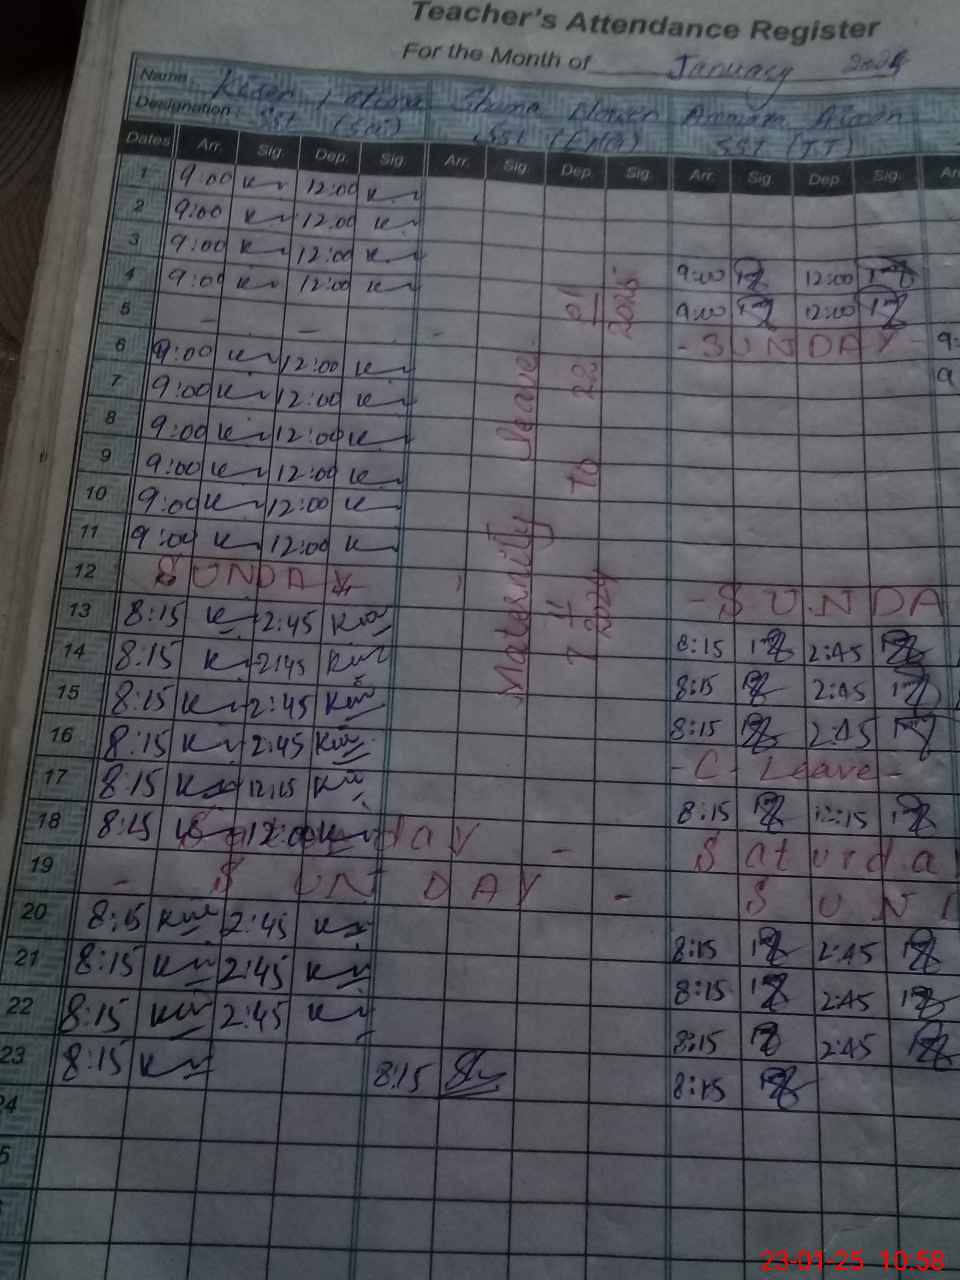 Teacher's Attendance Register
For the Month of January
Name
Designation: SST (Sci) SST (Eng) SST (IT)
Dates Arr. Sig. Dep. Sig. Arr. Sig. Dep. Sig. Arr. Sig. Dep. Sig. Arr
1 9:00 12:00
2 9:00 12:00
3 9:00 12:00
4 9:00 12:00 9:00 12:00
5 - - - 9:00 12:00
6 9:00 12:00 - SUNDAY - 9:
7 9:00 12:00 9
8 9:00 12:00
9 9:00 12:00
10 9:00 12:00
11 9:00 12:00
12 SUNDAY - SUNDA
13 8:15 2:45 8:15 2:45
14 8:15 2:45 8:15 2:45
15 8:15 2:45 8:15 2:45
16 8:15 2:45 - C. Leave -
17 8:15 12:15 8:15 12:15
18 8:15 12:00 day - Saturda
19 - SUNDAY - SUN
20 8:15 2:45 8:15 2:45
21 8:15 2:45 8:15 2:45
22 8:15 2:45 8:15 2:45
23 8:15 8:15 8:15
24
5
Maternity leave
7 11 2024 to 23 01 2025
23-01-25 10:58